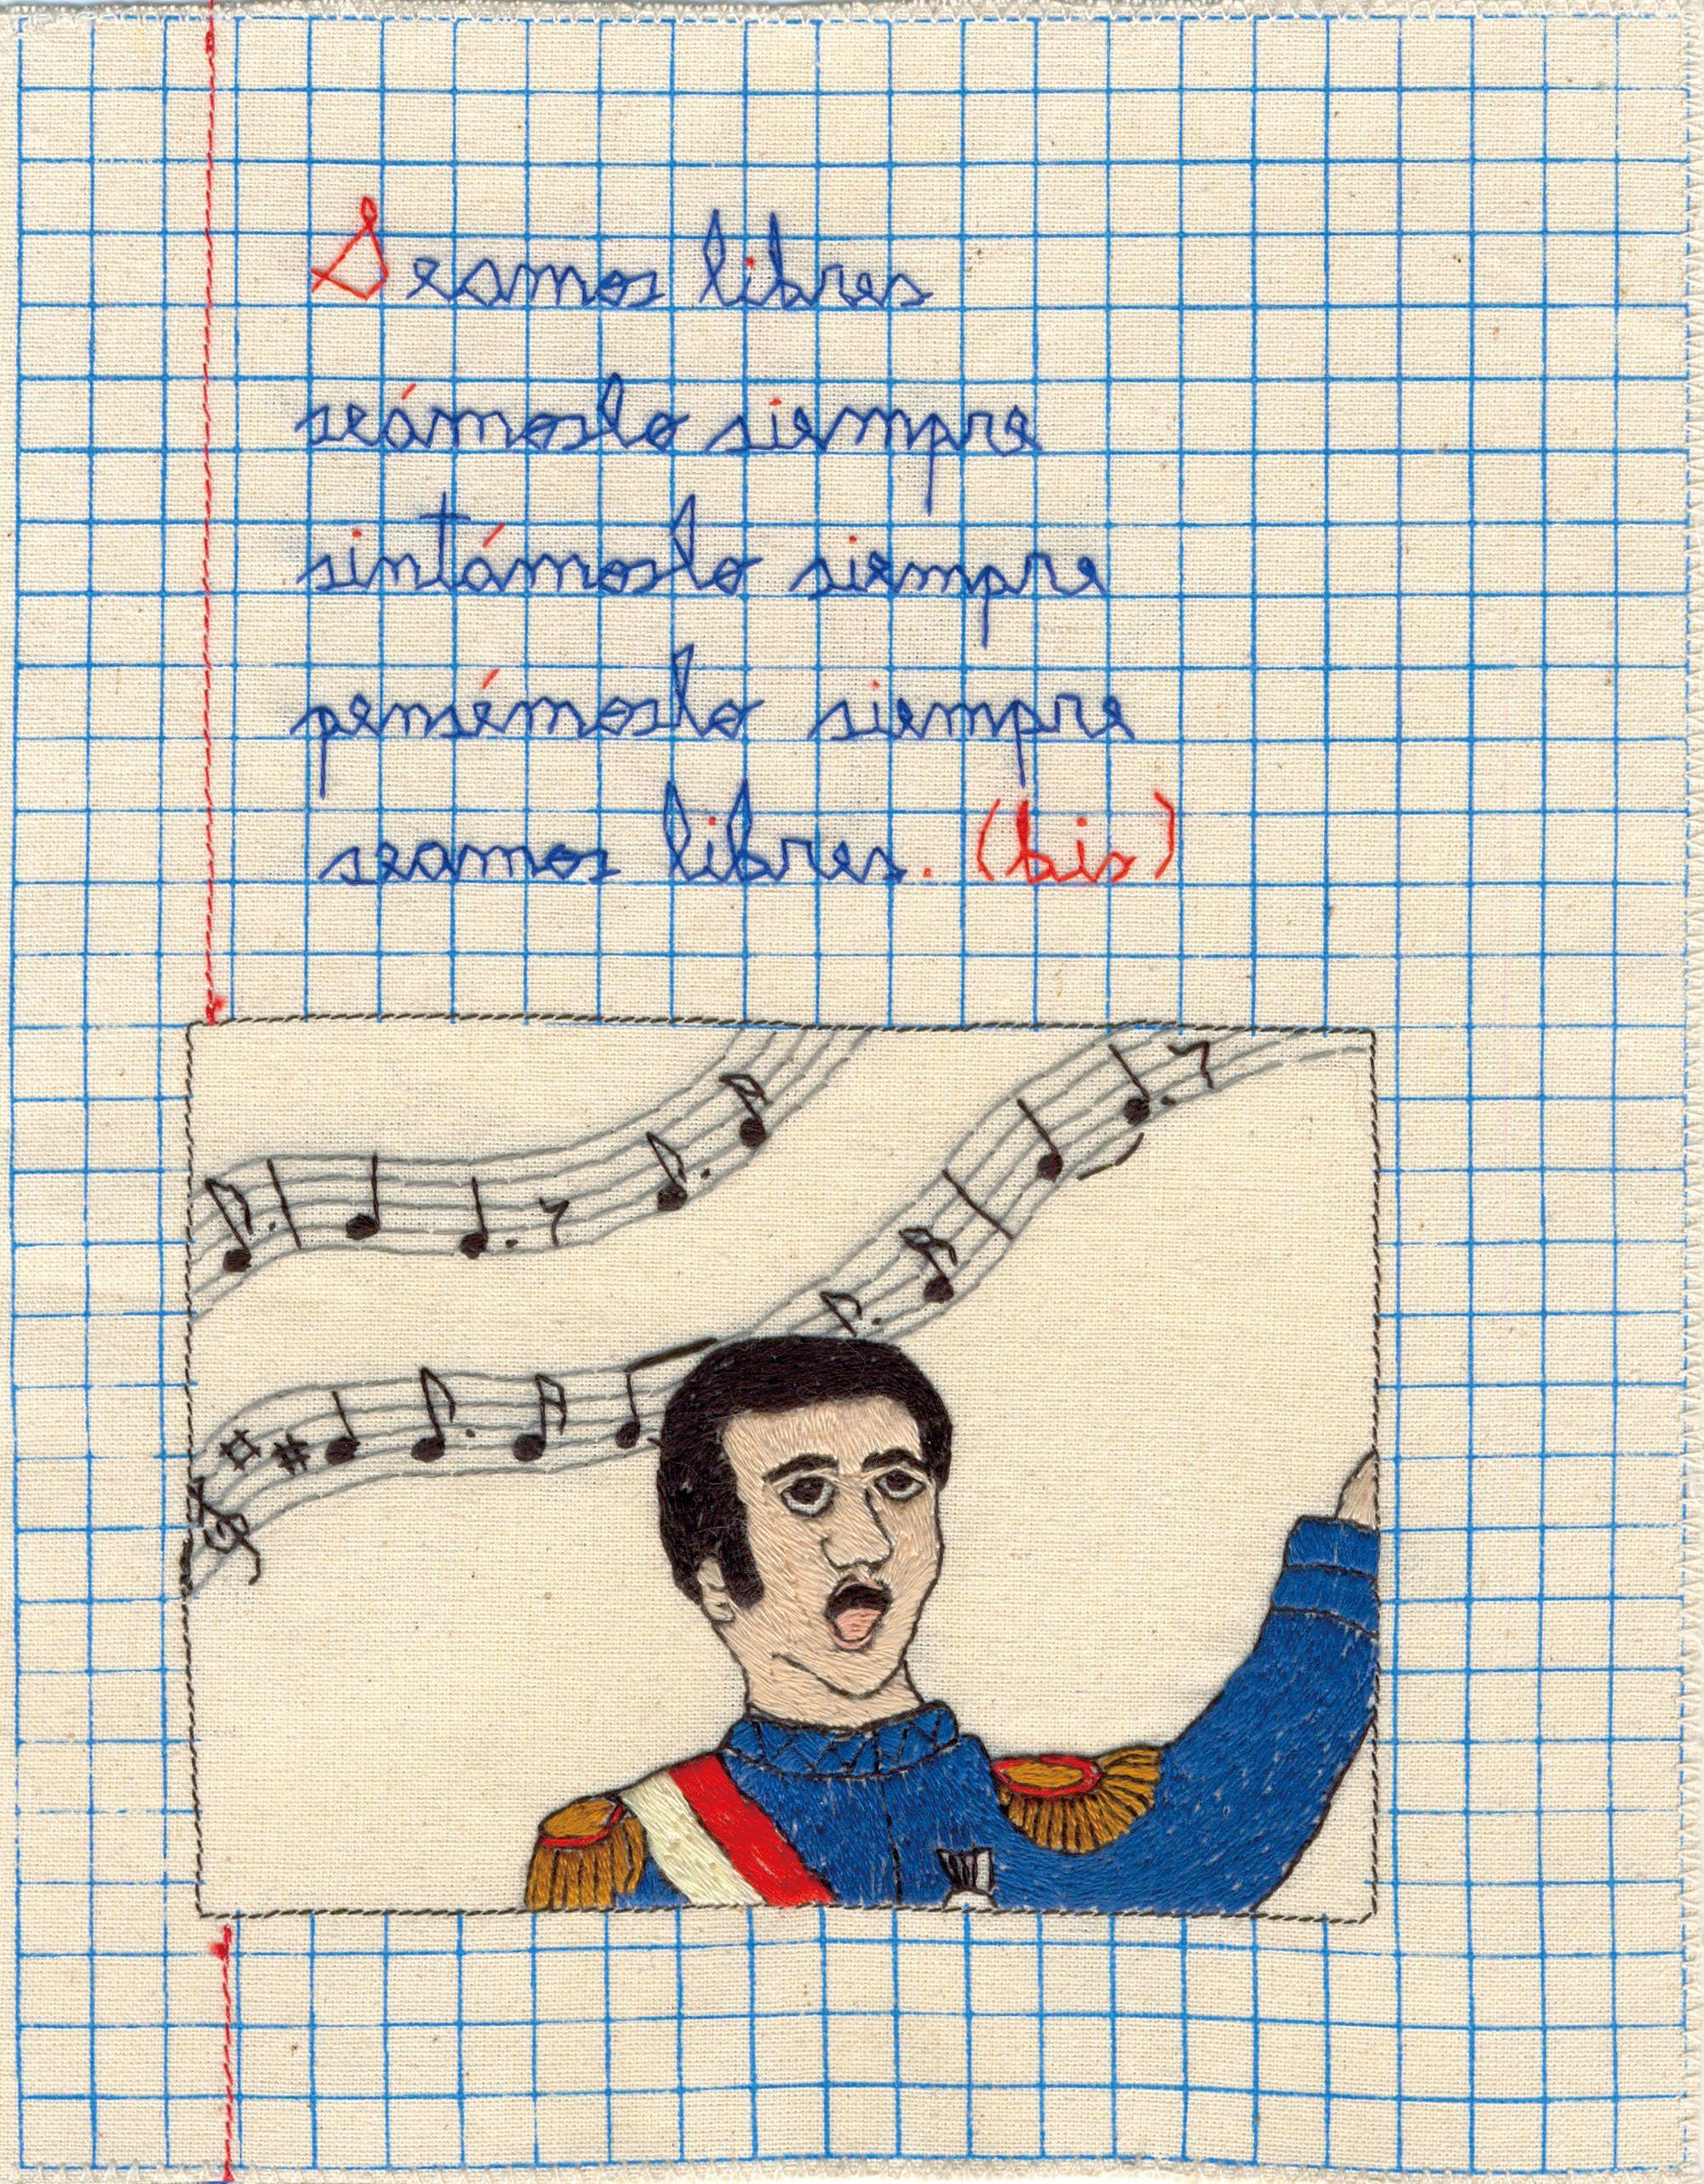 Seamos libres
seámoslo siempre
sintámoslo siempre
pensémoslo siempre
seamos libres. (bis)